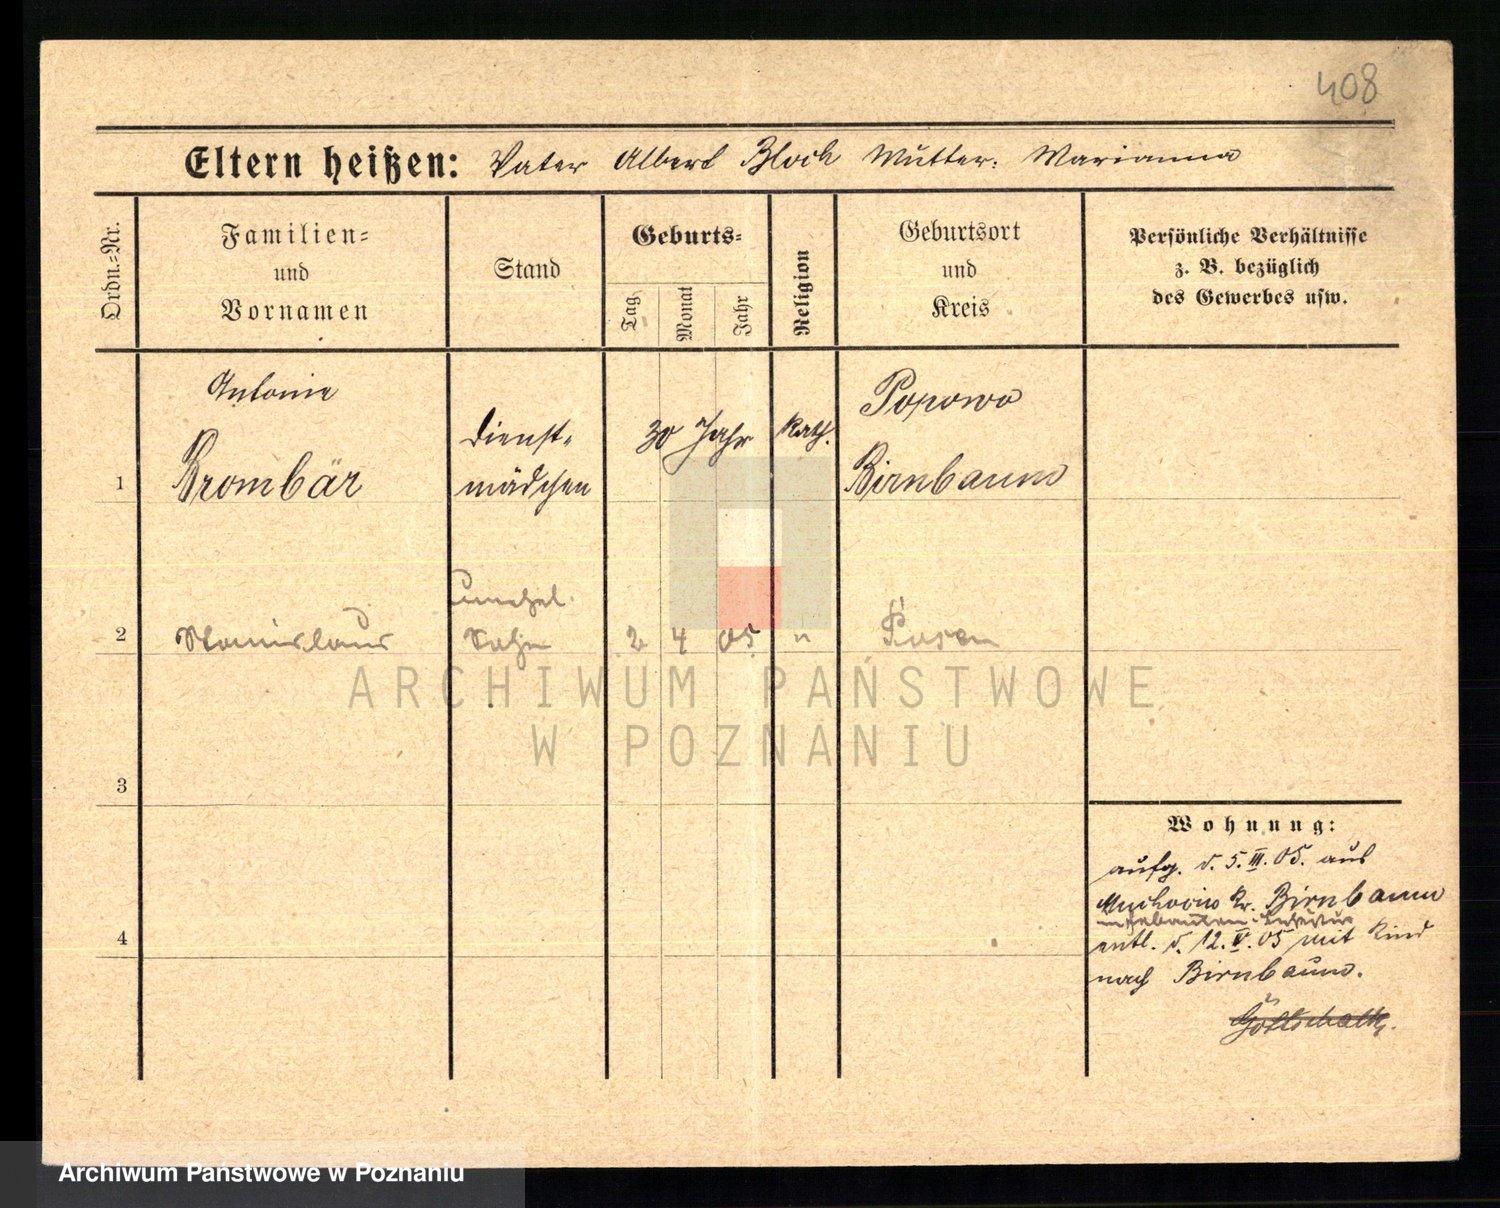 408
Eltern heißen: Vater Albert Bloch Mutter: Marianna
Ordn.-Nr.
Familien-
und
Vornamen
Stand
Geburts-
Tag
Monat
Jahr
Religion
Geburtsort
und
Kreis
Persönliche Verhältnisse
z. B. bezüglich
des Gewerbes usw.
Antonie
Brombär
1
Dienst-
mädchen
30 Jahr
Kath.
Popowo
Birnbaum
2
Stanislaus
unehel.
Sohn
2 4 05 "
Posen
3
4
Wohnung:
aufg. d. 5. III. 05. aus
Muchocin Kr. Birnbaum
entl. d. 12. V. 05 mit Kind
nach Birnbaum.
ARCHIWUM PAŃSTWOWE
W POZNANIU
Archiwum Państwowe w Poznaniu